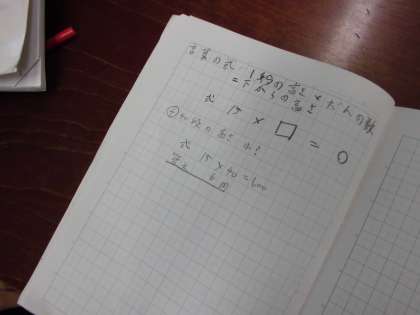 言葉の式 1段の高さ×だんの数
=下からの高さ
式 15 × □ = ○
④ 40段の高さ 何?
式 15×40=600
答え 6m